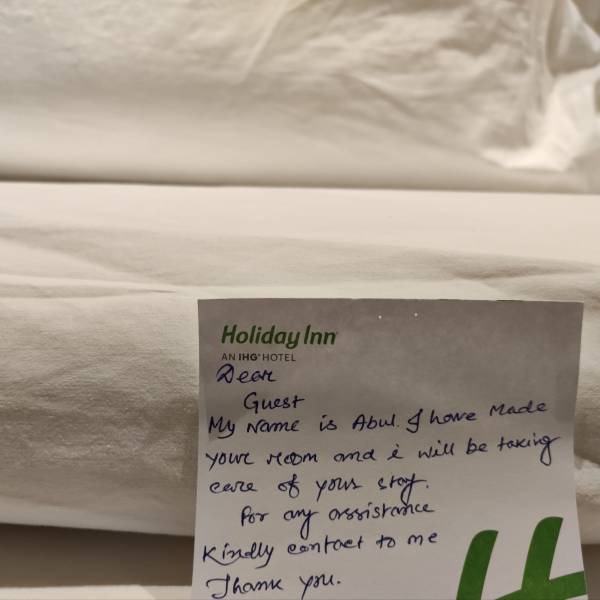 Holiday Inn
AN IHG® HOTEL
Dear
Guest
My Name is Abul. I have Made
your room and i will be taking
care of your stay.
For any assistance
Kindly contact to me
Thank you.